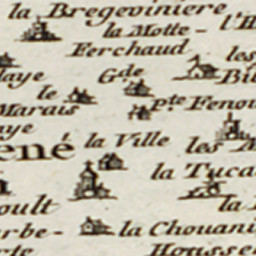 la Bregeviniere
la Motte - l'H
Ferchaud les
laye Gde Bu
le
Marais pte Fenou
aye
ené la Ville les M
la Tuca
oult la
rbe- la Chouani
rte Housse